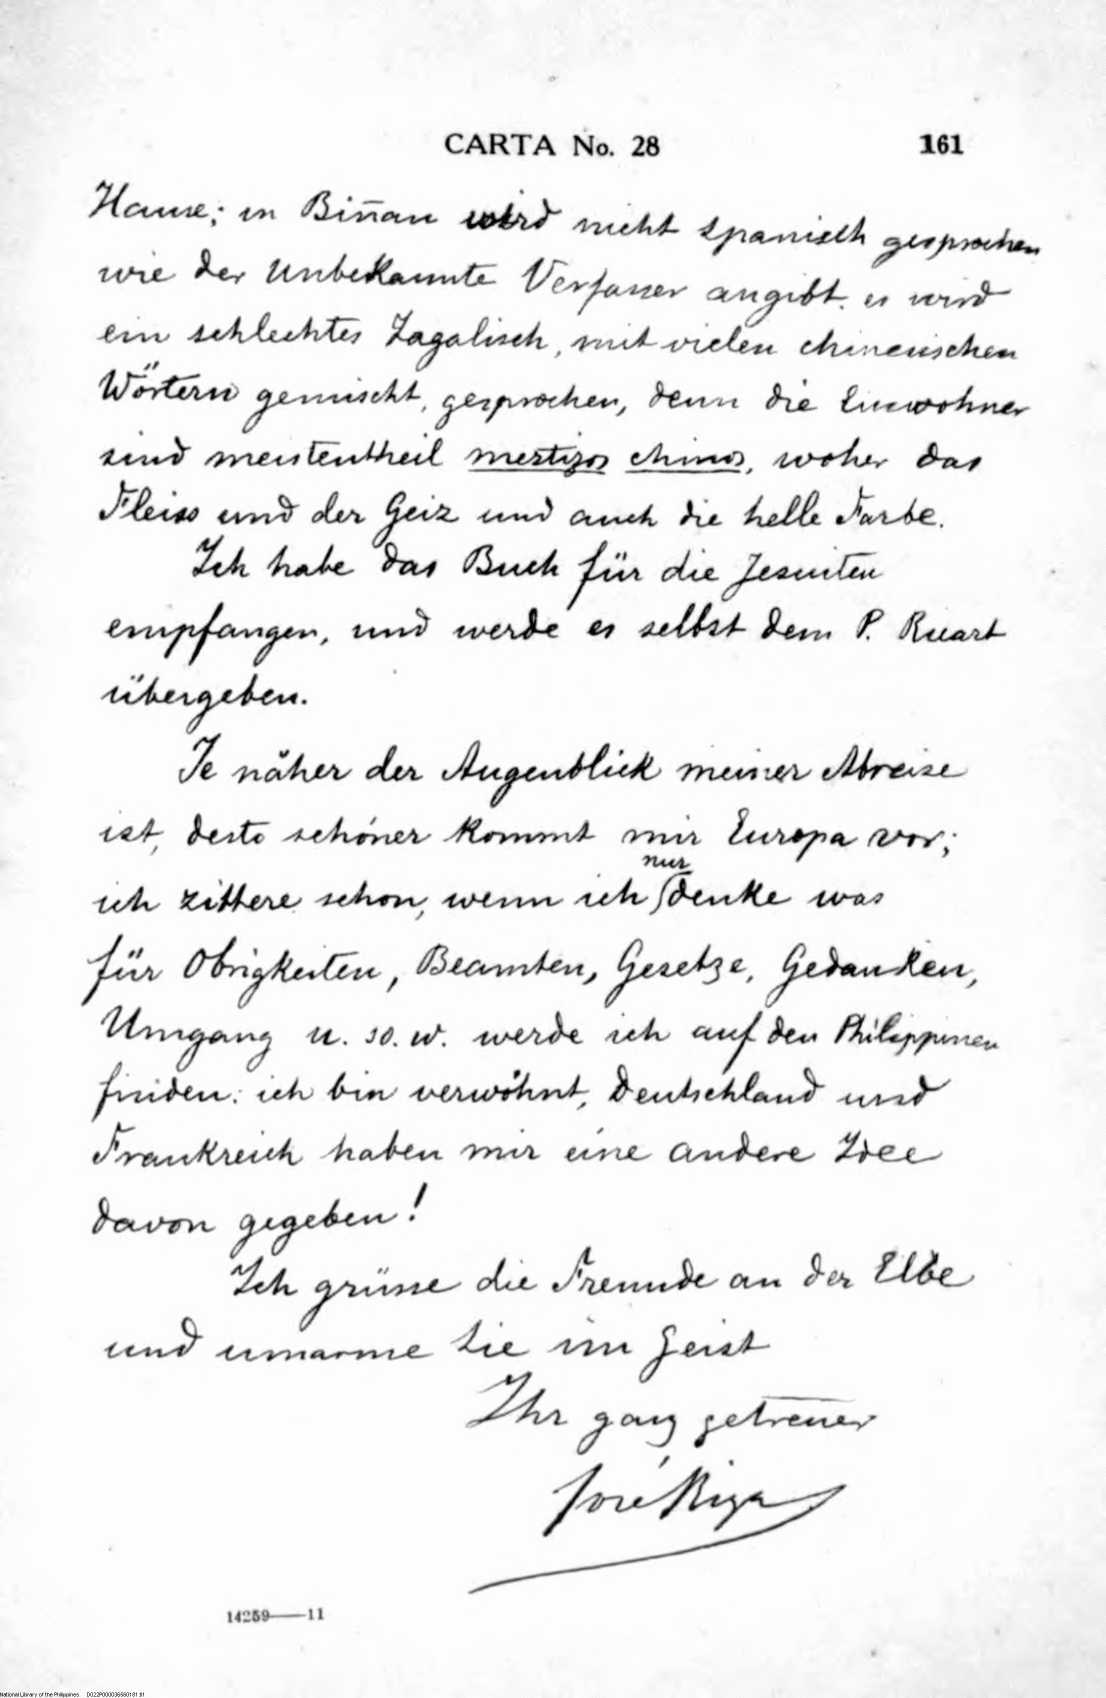 CARTA No. 28 161
Hause; in Biñan wird nicht spanisch gesprochen
wie der Unbekannte Verfasser angibt. es wird
ein schlechtes Tagalisch, mit vielen chinesischen
Wörtern gemischt, gesprochen, denn die Einwohner
sind meistentheil mestizos chinos, woher das
Fleiss und der Geiz und auch die helle Farbe.
Ich habe das Buch für die Jesuiten
empfangen, und werde es selbst dem P. Ricart
übergeben.
Je näher der Augenblick meiner Abreise
ist, desto schöner kommt mir Europa vor;
nur
ich zittere schon, wenn ich denke was
für Obrigkeiten, Beamten, Gesetze, Gedanken,
Umgang u. so. w. werde ich auf den Philippinen
finden: ich bin verwöhnt, Deutschland und
Frankreich haben mir eine andere Idee
davon gegeben!
Ich grüsse die Freunde an der Elbe
und umarme Sie im Geist
Ihr ganz getreuer
José Rizal
14259——11
National Library of the Philippines